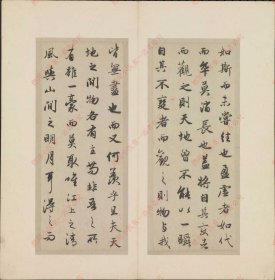 如斯而未嘗往也盈虛者如代
而卒莫消長也蓋將自其變者
而觀之則天地曾不能以一瞬
自其不變者而觀之則物與我
皆無盡也而又何羨乎且夫天
地之間物各有主苟非吾之所
有雖一毫而莫取唯江上之清
風與山間之明月耳得之而